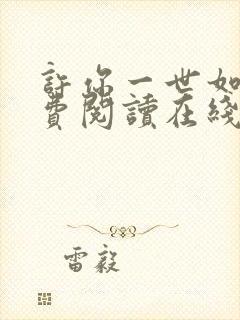 許你一世如
費閱讀在綫
雷毅